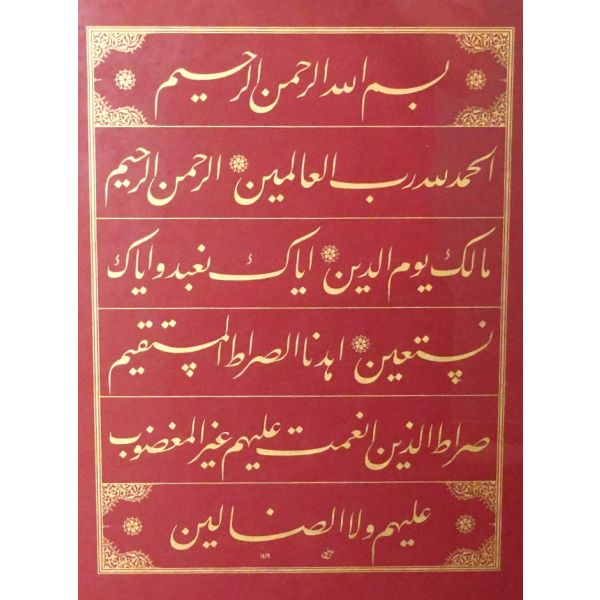 بسم الله الرحمن الرحيم
الحمد لله رب العالمين الرحمن الرحيم
مالك يوم الدين اياك نعبد و اياك
نستعين اهدنا الصراط المستقيم
صراط الذين انعمت عليهم غير المغضوب
عليهم ولا الضالين
١٤١٩